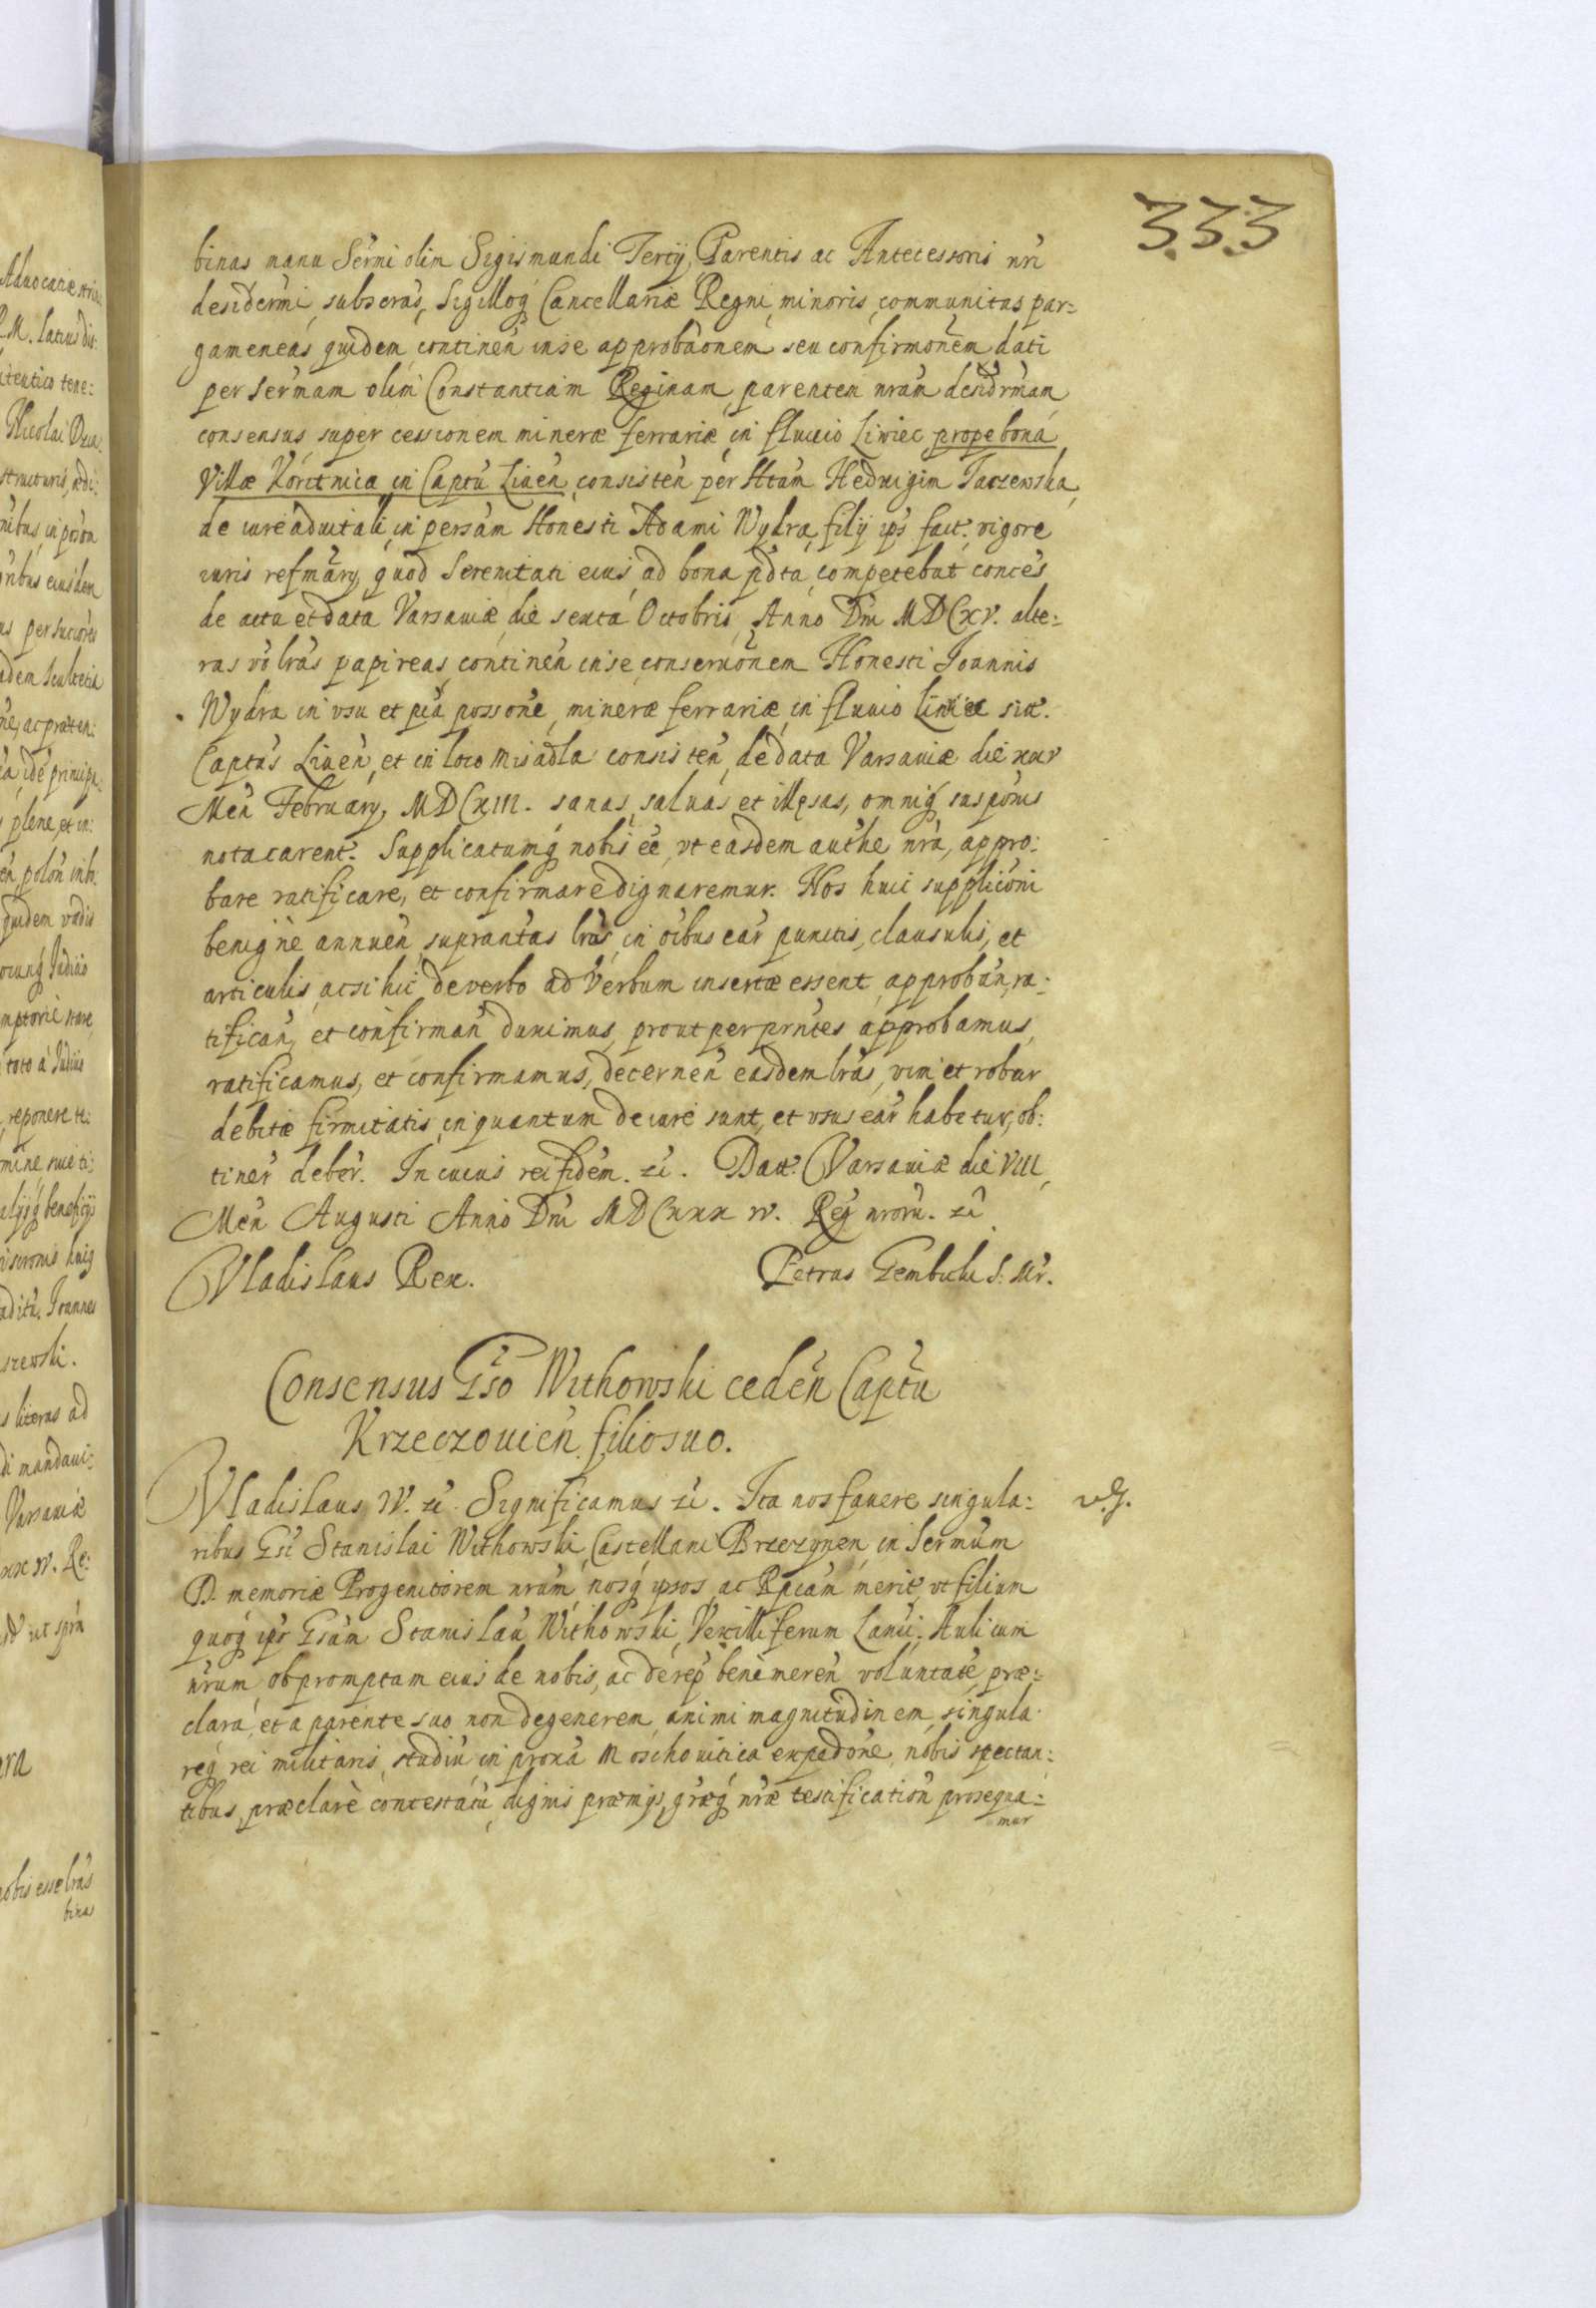 333
binas manu Sermi olim Sigismundi Tertij, Parentis ac Antecessoris nri
desidermi subscras, Sigilloq Cancellariæ Regni minoris communitas par=
gameneas quidem continen in se approbaonem seu confirmonem dati
per sermam olim Constantiam Reginam parentem nram desidrmam
consensus super cessionem mineræ ferrariæ in fluuio Liwiec prope bona
Villæ Koritnica in Captu Liuen consisten per Htam Heduigim Taczewska
de iure aduitali in persam Honesti Adami Wydra filij ips fact. vigore
iuris refmary, quod Serenitati eius ad bona pdta competebat conces
de actu et data Varsauiæ die sexta Octobris Anno Dni MDCXV. alte=
ras vo lras papireas continen in se conseruonem Honesti Joannis
Wydra in vsu et pca possone mineræ ferrariæ in fluuio Liwiec sitæ.
Captus Liuen, et in loco Misadla consisten de data Varsauiæ die XXIV
Men February, MDCXIII. sanas saluas et illęsas, omniq susponis
nota carent. Supplicatumq nobis ee vt easdem authe nra, appro=
bare ratificare, et confirmare dignaremur. Nos huic suppliconi
benigne annuen suprantas lras in oibus ear punctis, clausulis, et
articulis ac si hic de verbo ad Verbum insertæ essent approban, ra=
tifican, et confirman duximus, prout per prntes approbamus
ratificamus, et confirmamus, decernen easdem lras vim et robur
debitæ firmitatis in quantum de iure sunt, et vsus ear habetur, ob=
tiner deber. In cuius rei fidem. zc. Dat. Varsauiæ die VIII
Men Augusti Anno Dni MDCXXX IV. Reg nroru. zc
Vladislaus Rex. Petrus Gembicki S. Mr.
Consensus Gso Withowski ceden Captu
Krzeczouien filio suo.
Vladislaus IV. zc Significamus zc. Ita nos fauere singula= v.g.
ribus Gsi Stanislai Withowski Castellani Brzezynen in Sermum
D. memoriæ Progenitorem nrum nosq ipsos, ac Rpcam merit, vt filium
quoq ips Gsum Stanislau Withowski Vexilliferum Lancic. Aulicum
nrum ob promptam eius de nobis, ac de rep bene meren voluntate præ=
clara, et a parente suo non degenerem animi magnitudinem singula=
req rei militaris studiu in proxa Moschouitica expedone nobis spectan=
tibus præclarè contestatu dignis præmijs, græq nræ testification prosequa=
mur